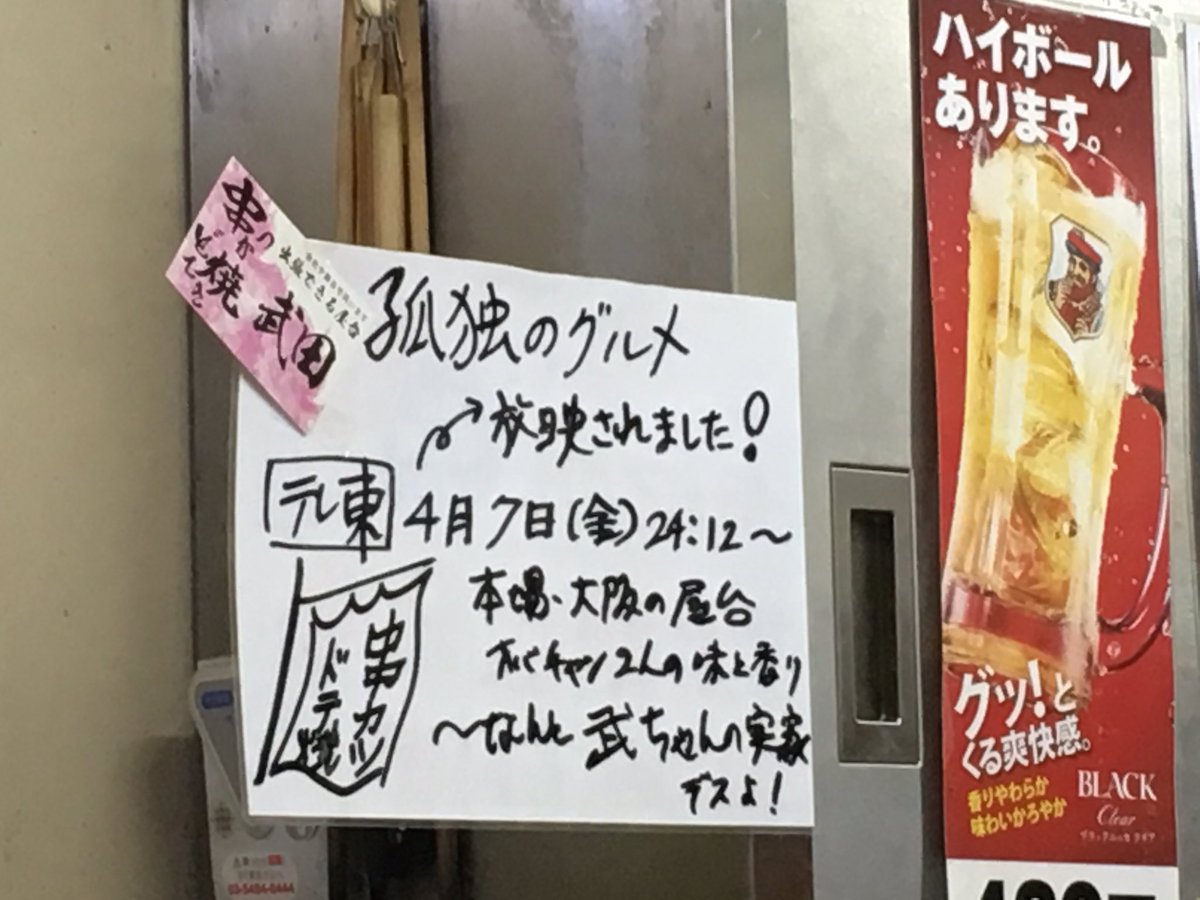 串かつ
どて焼
武田
出張できる屋台
孤独のグルメ
放映されました!
テレ東
4月7日(金)24:12~
本場・大阪の屋台
オバチャン2人の味と香り
~なんと武ちゃんの実家
デスよ!
串カツ
ドテ焼
ハイボール
あります。
グッ!と
くる爽快感。
香りやわらか
味わいかろやか
BLACK
Clear
ブラックニッカ クリア
03-5484-8444